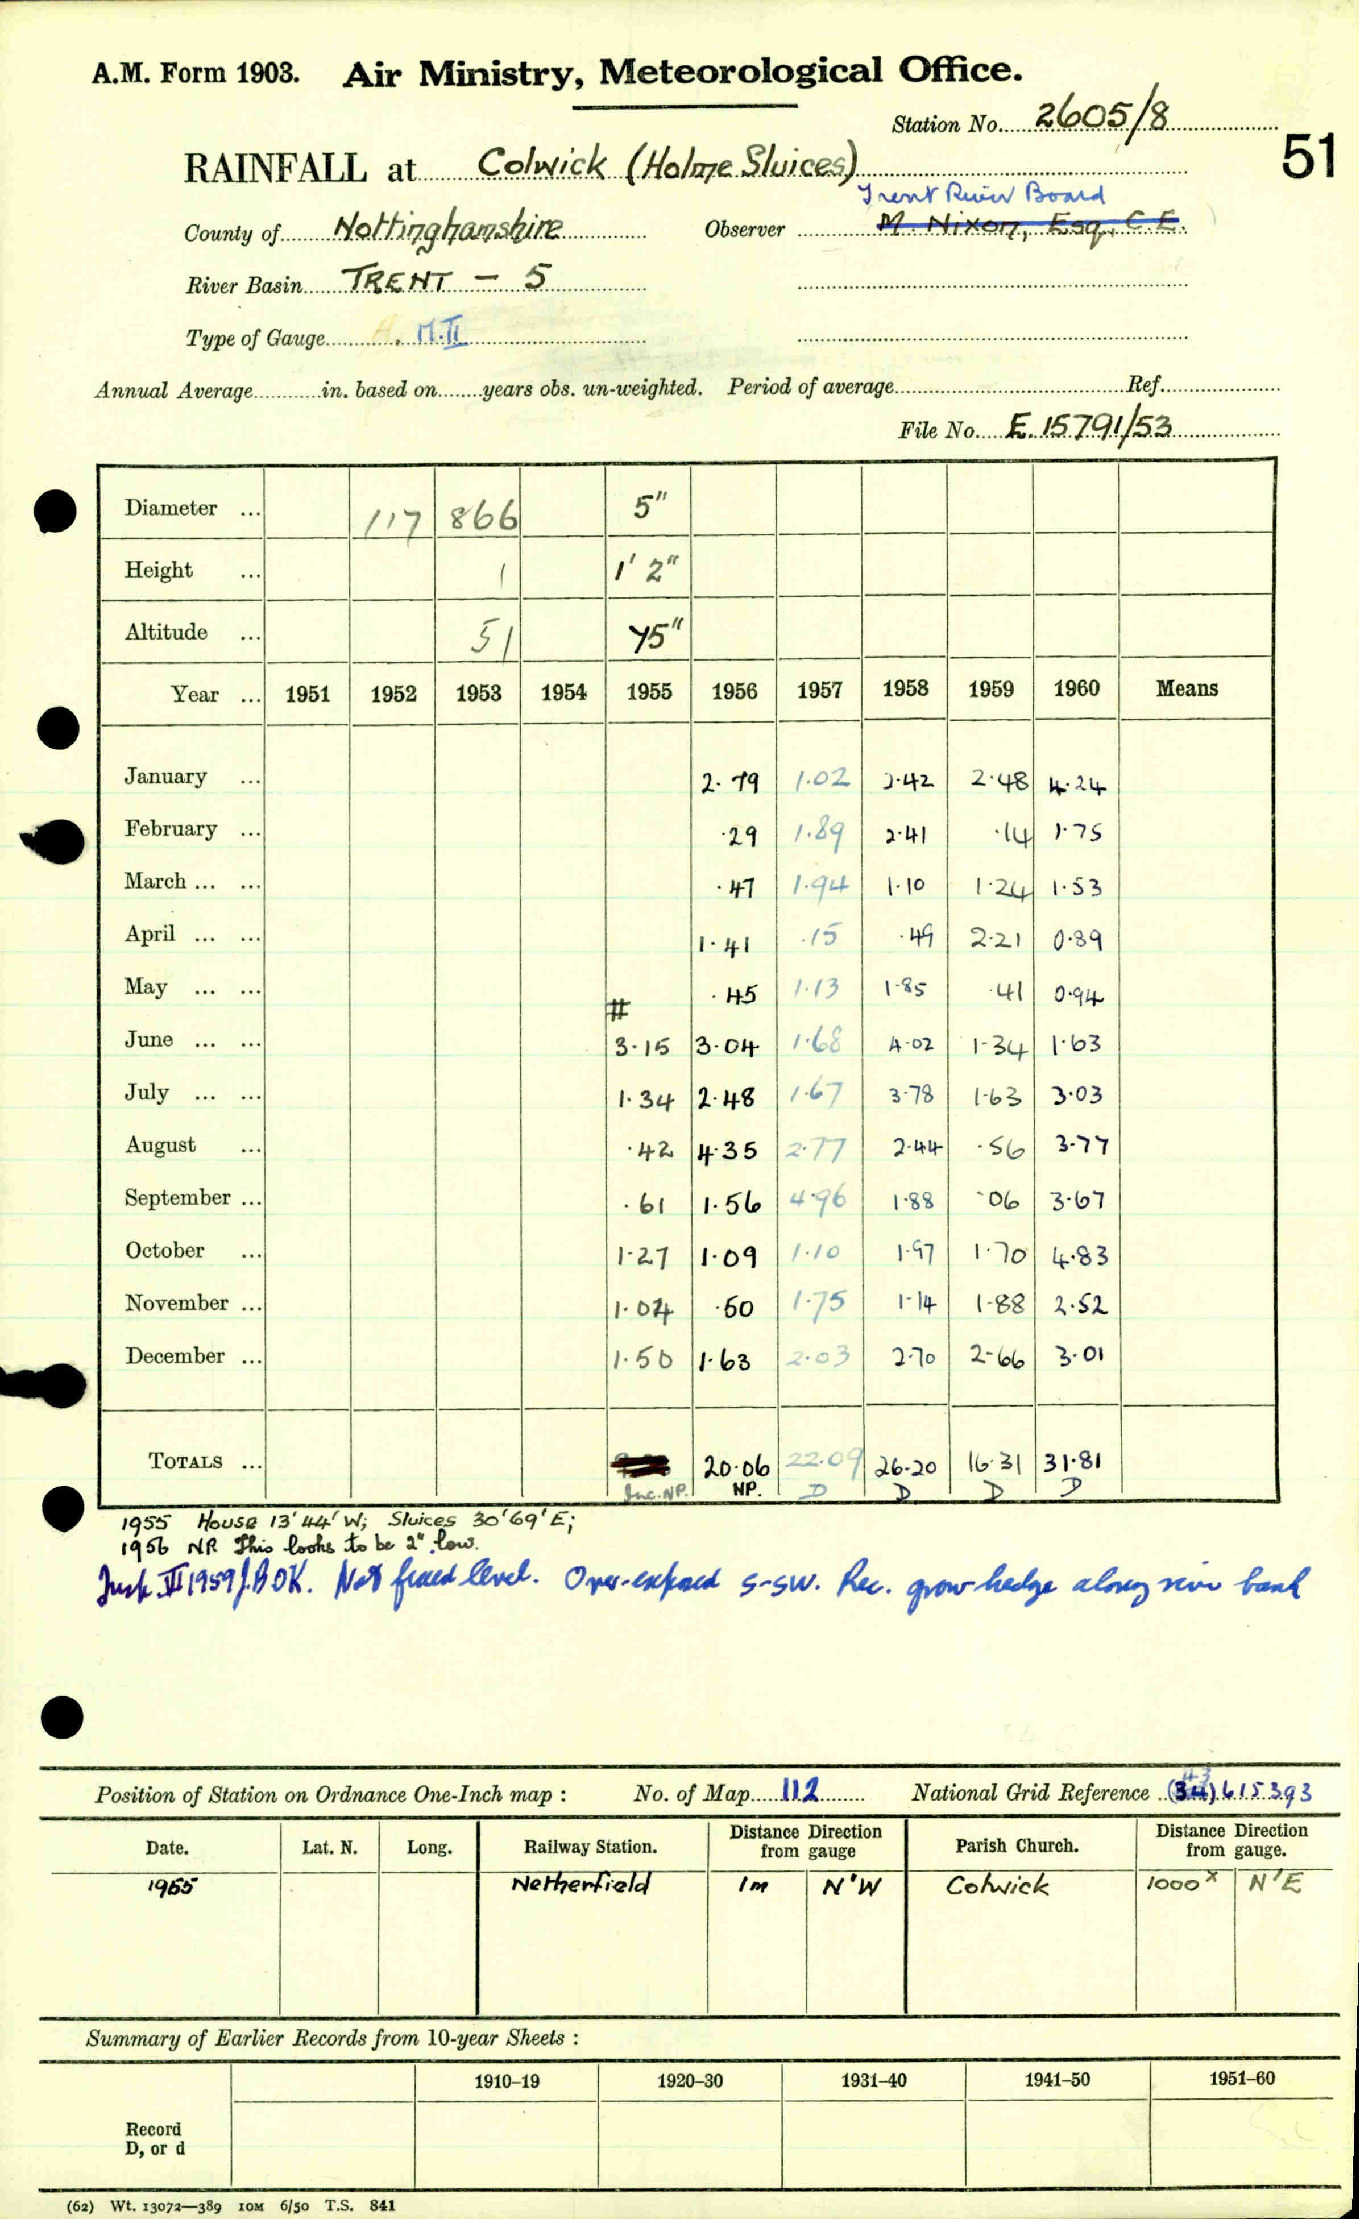 A.M. Form 1903. Air Ministry, Meteorological Office.
Station No. 2605/8
51
RAINFALL at Colwick (Holme Sluices)
Trent River Board
County of Nottinghamshire Observer M. Nixon, Esq., C.E.
River Basin TRENT – 5
Type of Gauge M.II
Annual Average in. based on years obs. un-weighted. Period of average Ref.
File No. E.15791/53
Diameter ... 117 866 5"
Height ... 1 1' 2"
Altitude ... 51 75"
Year ... 1951 1952 1953 1954 1955 1956 1957 1958 1959 1960 Means
January ... 2.79 1.02 2.42 2.48 4.24
February ... .29 1.89 2.41 .14 1.75
March ... ... .47 1.94 1.10 1.24 1.53
April ... ... 1.41 .15 .49 2.21 0.89
May ... ... .45 1.13 1.85 .41 0.94
#
June ... ... 3.15 3.04 1.68 4.02 1.34 1.63
July ... ... 1.34 2.48 1.67 3.78 1.63 3.03
August ... .42 4.35 2.77 2.44 .56 3.77
September ... .61 1.56 4.96 1.88 .06 3.67
October ... 1.27 1.09 1.10 1.97 1.70 4.83
November ... 1.04 .50 1.75 1.14 1.88 2.52
December ... 1.50 1.63 2.03 2.70 2.66 3.01
TOTALS ... 20.06 22.09 26.20 16.31 31.81
Inc. NP. NP. D D D D
1955 House 13'44' W; Sluices 30'69' E;
1956 NP. This looks to be 2" low.
Insp. VII 1959 J.B OK. Not fixed level. Over-exposed S-SW. Rec. grow hedge along river bank
Position of Station on Ordnance One-Inch map : No. of Map 112 National Grid Reference (34) 615393
43
Date. Lat. N. Long. Railway Station. Distance from gauge Direction Parish Church. Distance from gauge. Direction
1955 Netherfield 1m N'W Colwick 1000x N'E
Summary of Earlier Records from 10-year Sheets :
1910–19 1920–30 1931–40 1941–50 1951–60
Record
D, or d
(62) Wt. 13072—389 10M 6/50 T.S. 841